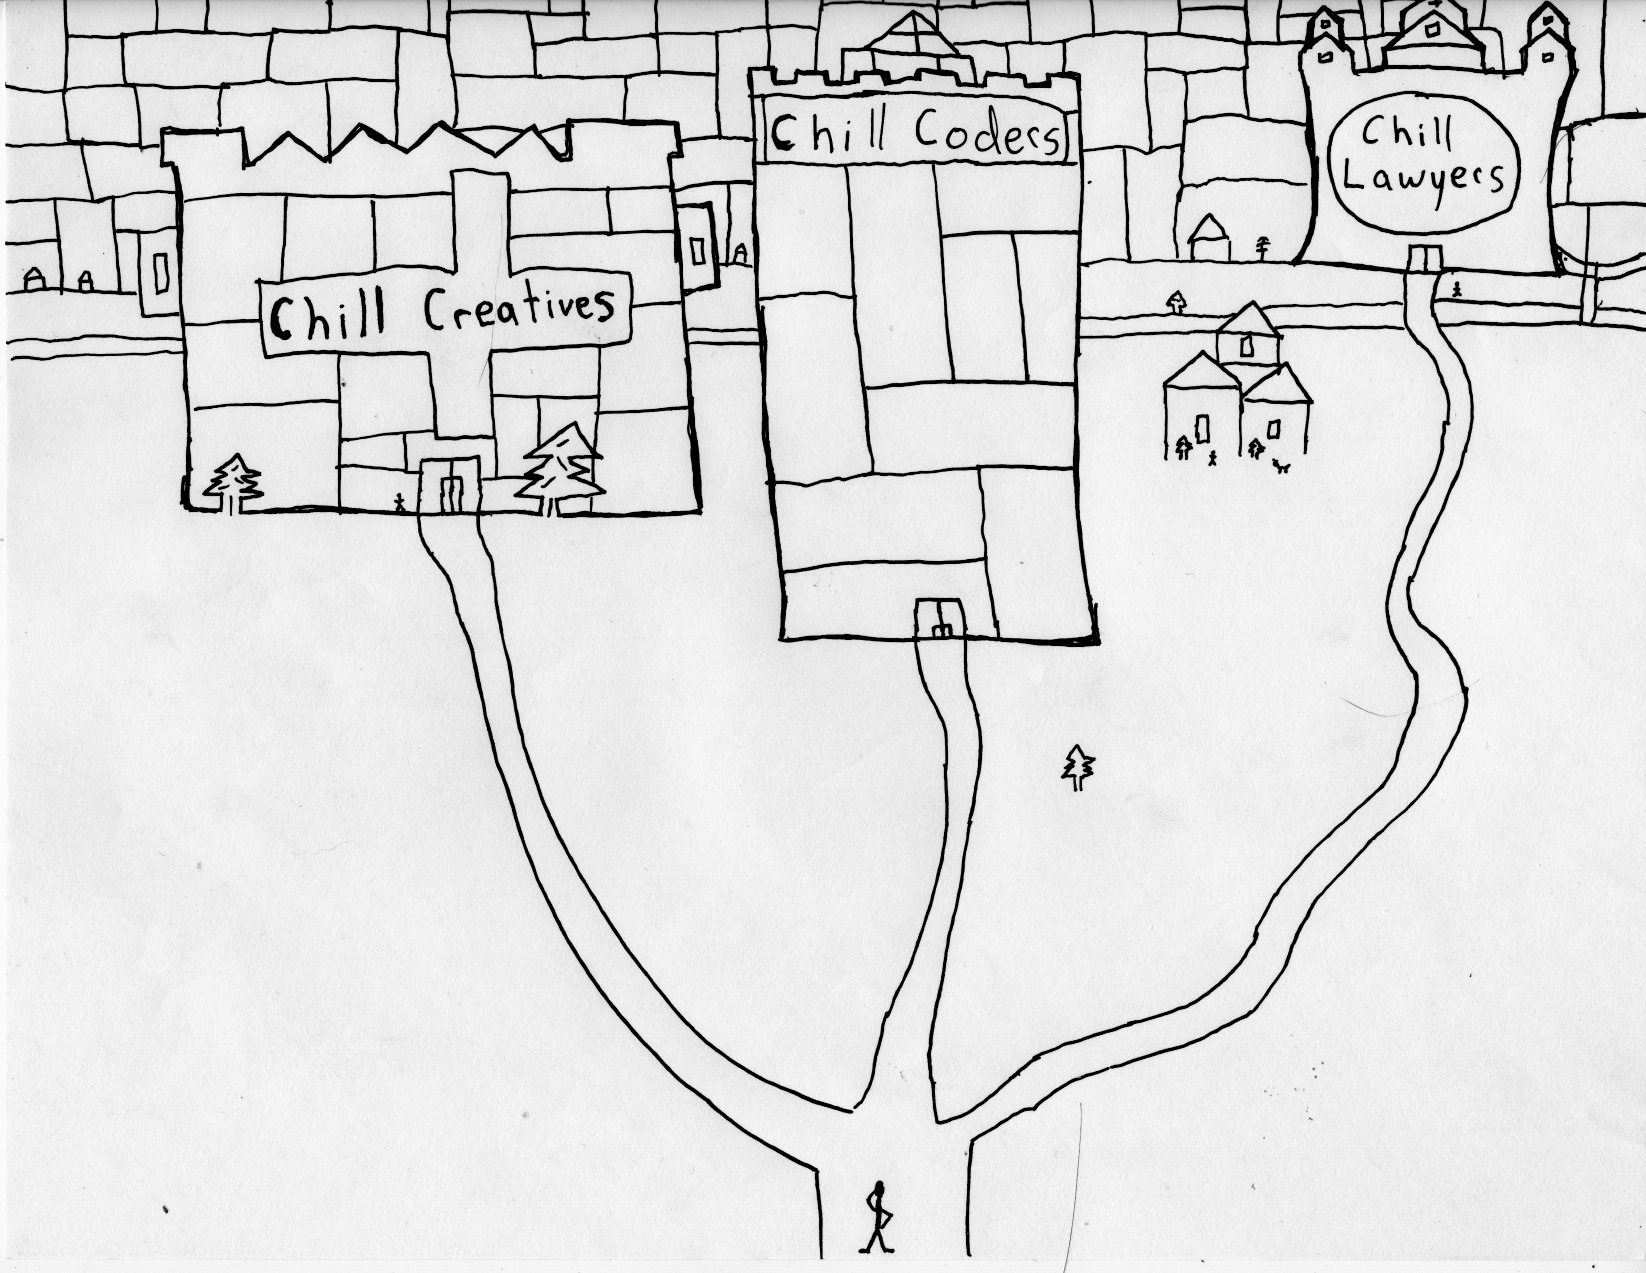 Chill Creatives
Chill Coders
Chill
Lawyers